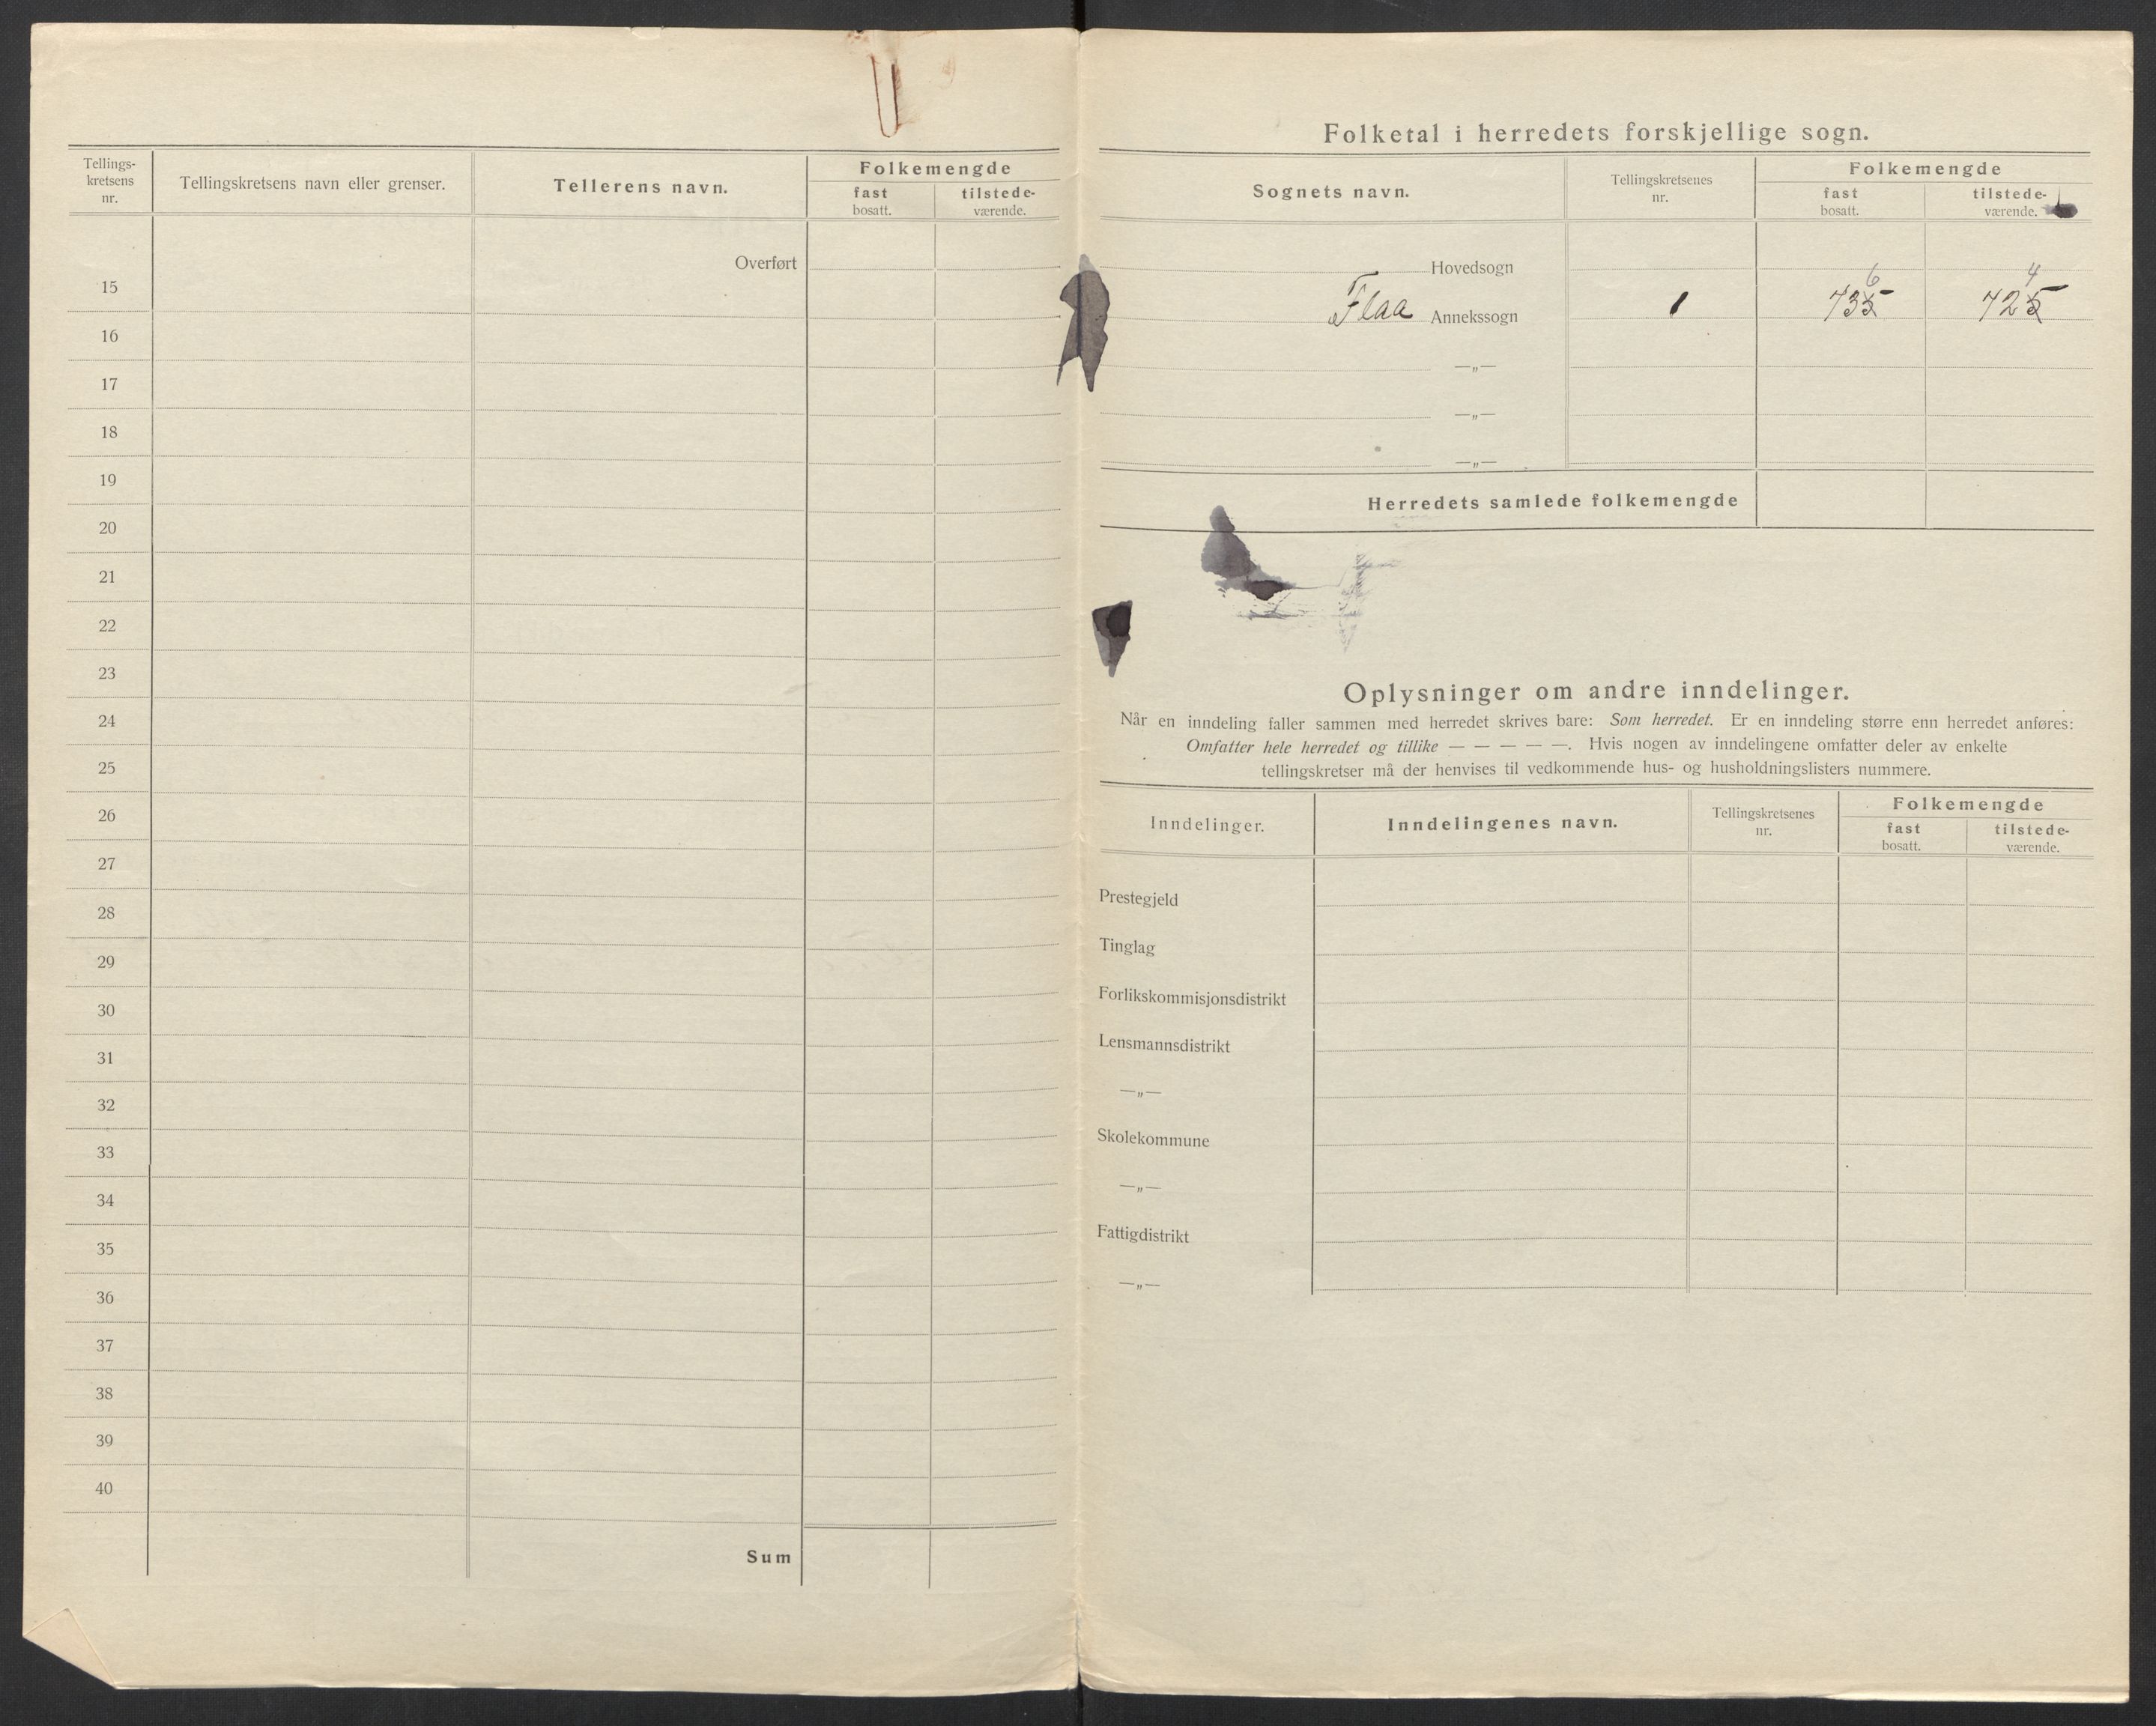 Tellings-
kretsens
nr.
Tellingskretsens navn eller grenser.
Tellerens navn.
Folkemengde
fast
bosatt.
tilstede-
værende.
Overført
15
16
17
18
19
20
21
22
23
24
25
26
27
28
29
30
31
32
33
34
35
36
37
38
39
40
Sum
Folketal i herredets forskjellige sogn.
Sognets navn.
Tellingskretsenes
nr.
Folkemengde
fast
bosatt.
tilstede-
værende.
Hovedsogn
6 4
Flaa Annekssogn 1 735 725
—„—
—„—
—„—
Herredets samlede folkemengde
Oplysninger om andre inndelinger.
Når en inndeling faller sammen med herredet skrives bare: Som herredet. Er en inndeling større enn herredet anføres:
Omfatter hele herredet og tillike — — — — —. Hvis nogen av inndelingene omfatter deler av enkelte
tellingskretser må der henvises til vedkommende hus- og husholdningslisters nummere.
Inndelinger.
Inndelingenes navn.
Tellingskretsenes
nr.
Folkemengde
fast
bosatt.
tilstede-
værende.
Prestegjeld
Tinglag
Forlikskommisjonsdistrikt
Lensmannsdistrikt
—„—
Skolekommune
—„—
Fattigdistrikt
—„—